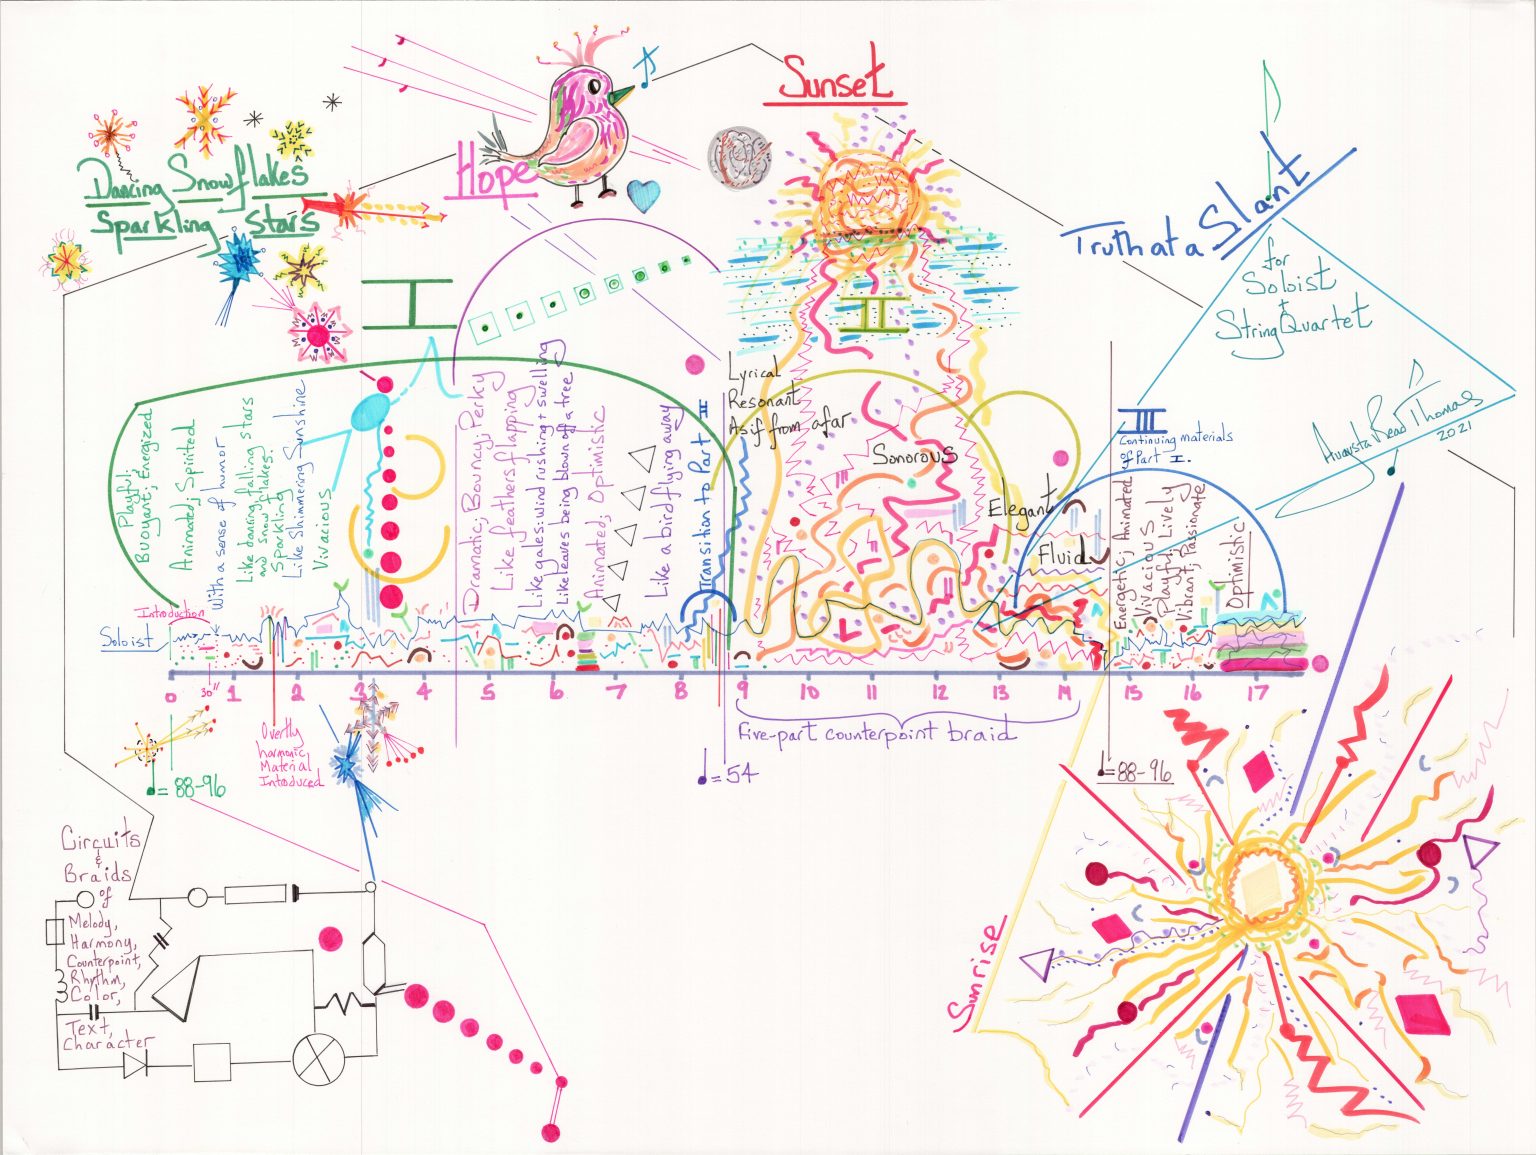 Sunset
Hope
Dancing Snowflakes
Sparkling Stars
Truth at a Slant
for
Soloist
+
String Quartet
Augusta Read Thomas
2021
I
II
III
Continuing materials
of Part I.
Playful,
Buoyant, Energized
Animated, Spirited
With a sense of humor
Like dancing falling stars
and snowflakes.
Sparkling
Like Shimmering Sunshine
Vivacious
Dramatic, Bouncy, Perky
Like feathers flapping
Like gales: wind rushing + swelling
Like leaves being blown off a tree
Animated, Optimistic
Like a bird flying away
Transition to Part II
Lyrical
Resonant
As if from afar
Sonorous
Elegant
Fluid
Energetic, Animated
Vivacious
Playful, Lively
Vibrant, Passionate
Optimistic
Introduction
Soloist
0 30" 1 2 3 4 5 6 7 8 9 10 11 12 13 14 15 16 17
Overtly
harmonic
Material
Introduced
Five-part counterpoint braid
♩= 88-96
♩= 54
♩= 88-96
Circuits
&
Braids
of
Melody,
Harmony,
Counterpoint,
Rhythm,
Color,
Text,
Character
Sunrise